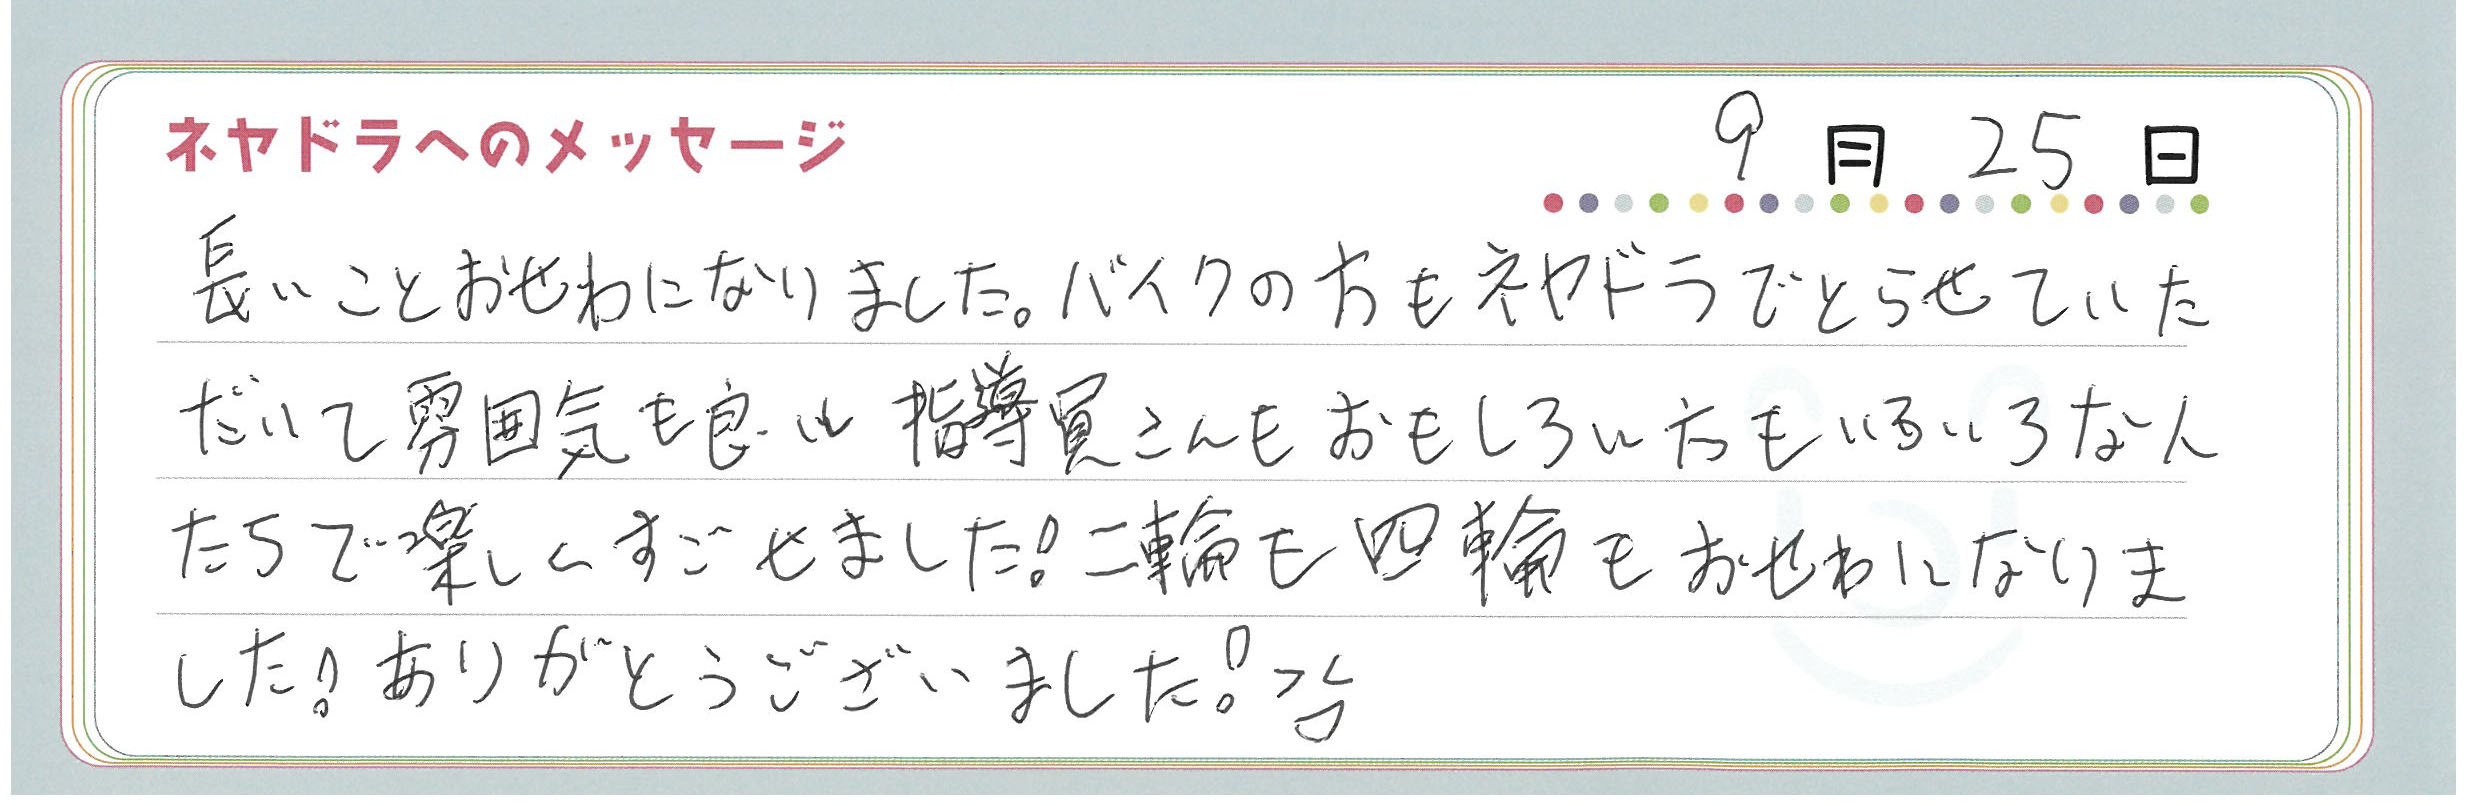 ネヤドラへのメッセージ
9月25日
長いことおせわになりました。バイクの方もネヤドラでとらせていた
だいて雰囲気も良い指導員さんもおもしろい方もいろいろな人
たちで楽しくすごせました!二輪も四輪もおせわになりま
した!ありがとうございました!